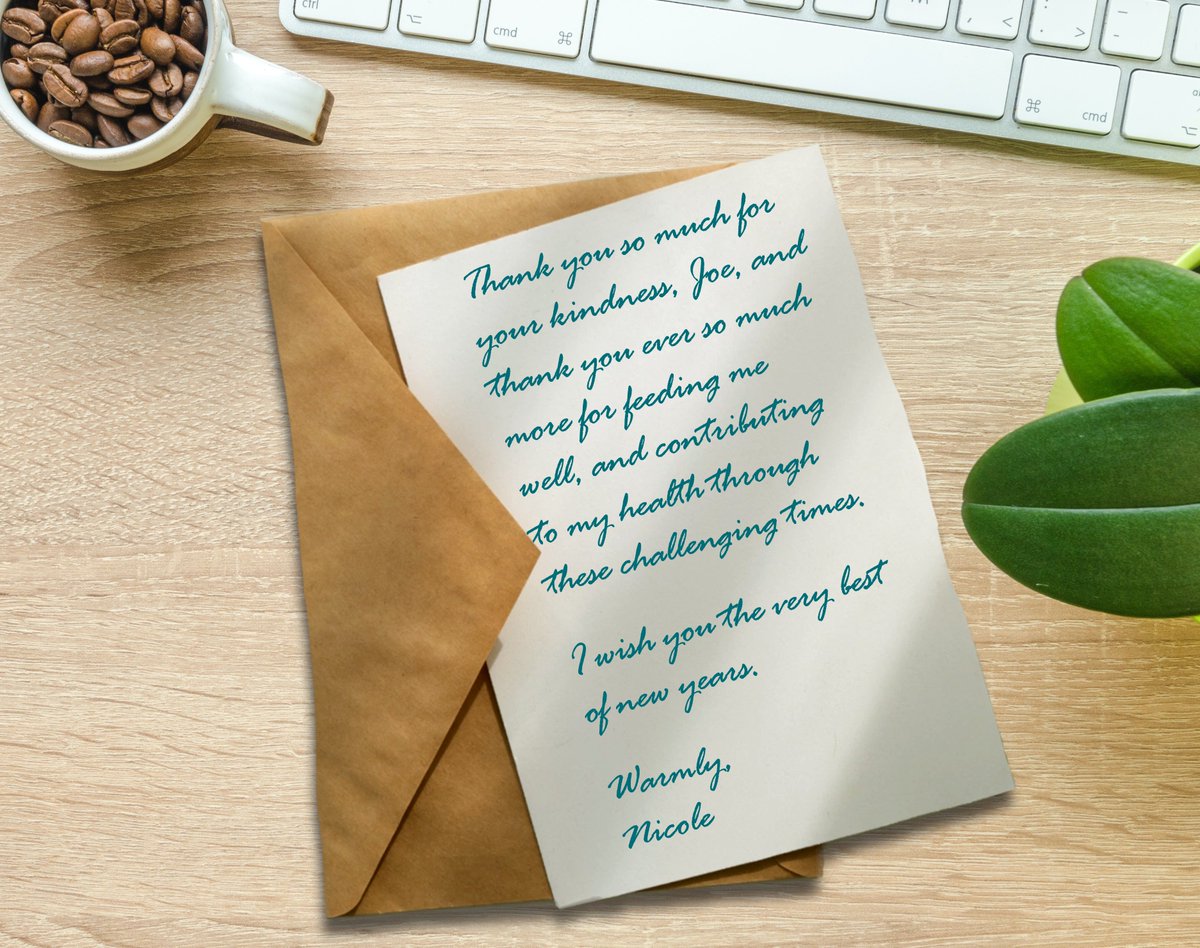 ctrl
cmd ⌘
⌘ cmd
Thank you so much for
your kindness, Joe, and
thank you ever so much
more for feeding me
well, and contributing
to my health through
these challenging times.
I wish you the very best
of new years.
Warmly,
Nicole